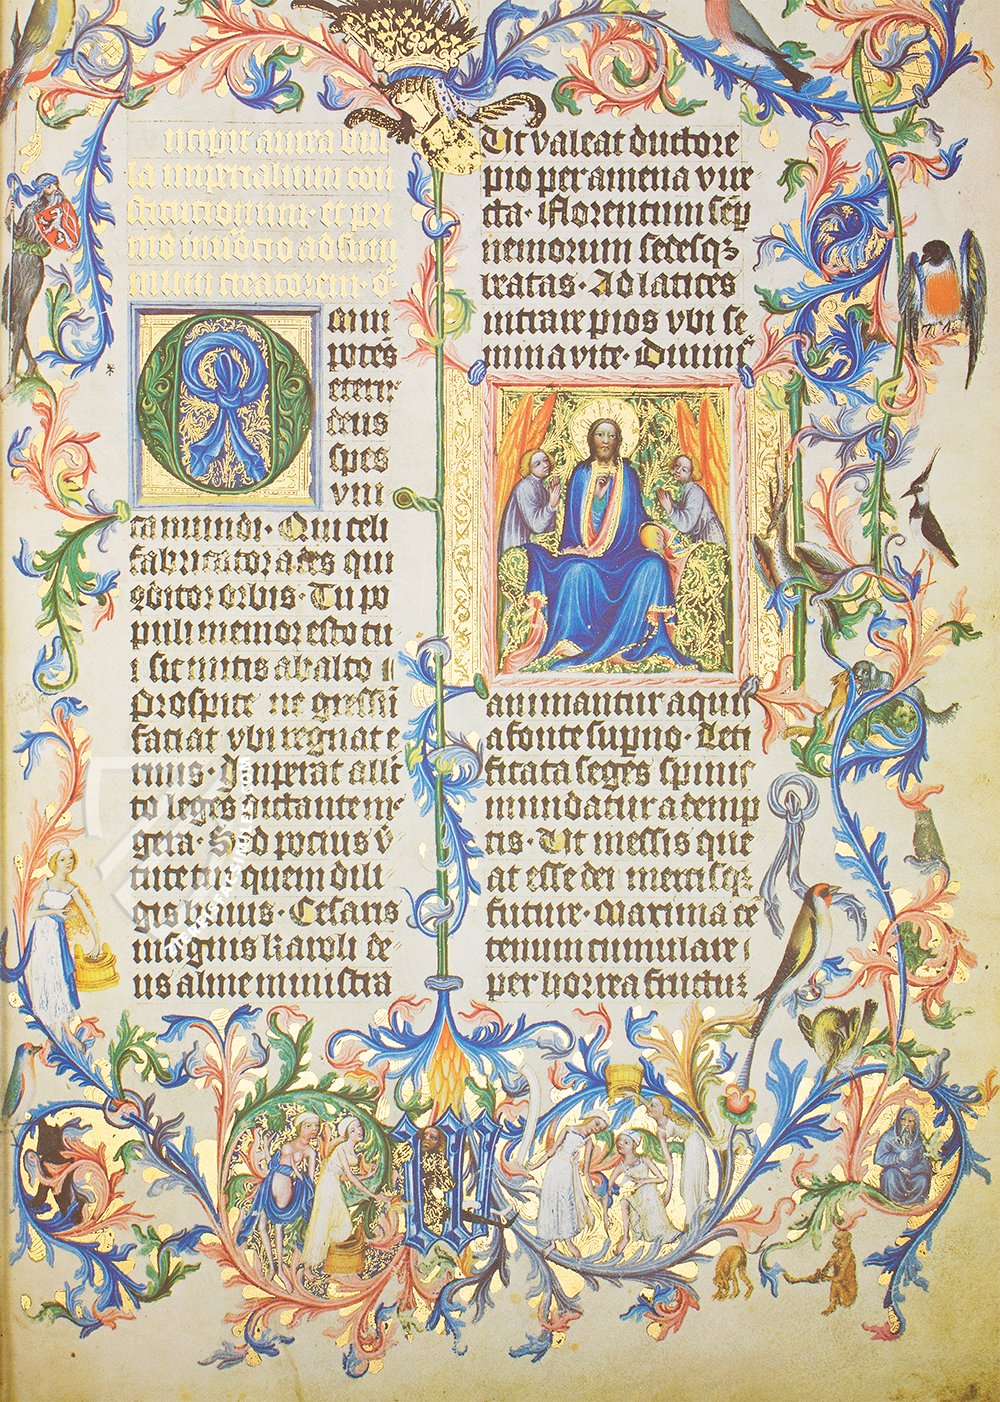 ncipit aurea bul
la imperialium con
stitucionum · et pri
mo inuocio ad sum
mum creatorem · o
Omni
potes
eterne
deus
spes
vni
ca mundi · Qui celi
fabricator ades qui
9ditor orbis · Tu po
puli memor esto tu
i sic mitis ab alto
prospice ne gressū
faciat vbi regnat e
rinis · Imperat alle
to leges dictante me
gera · Sed pocius v̄
tute tu quem dili
gis huius · Cesaris
insignis karoli de
us alme ministra
Ut valeat ductore
pio per amena vire
cta · Florentum sep̄
nemorum sedesqȝ
beatas · Ad latices
intrare pios vbi se
mina vite · Diuini
animantur aquis
a fonte superno · Leti
ficata seges spinis
mundatur ademp
tis · Ut messis que
at esse dei mercisqȝ
future · Maxima ce
tenum cumulare
per horrea fructus
W